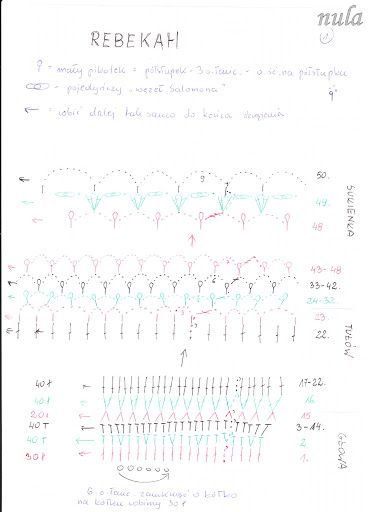 nula
REBEKAH
1
- mały pikotek = półsłupek - 3 o. łańc. - o. śc. na półsłupku
- pojedynczy "węzeł Salomona"
← - robić dalej tak samo do końca okrążenia
50.
49.
48
SUKIENKA
43-48
33-42.
24-32.
23.
22.
TUŁÓW
40 ł 17-22.
40 ł 16
20 ł 15
40 T 3-14.
40 T 2.
30 ł 1.
GŁOWA
6 o. łańc. zamknąć w kółko
na kółku robimy 30 ł